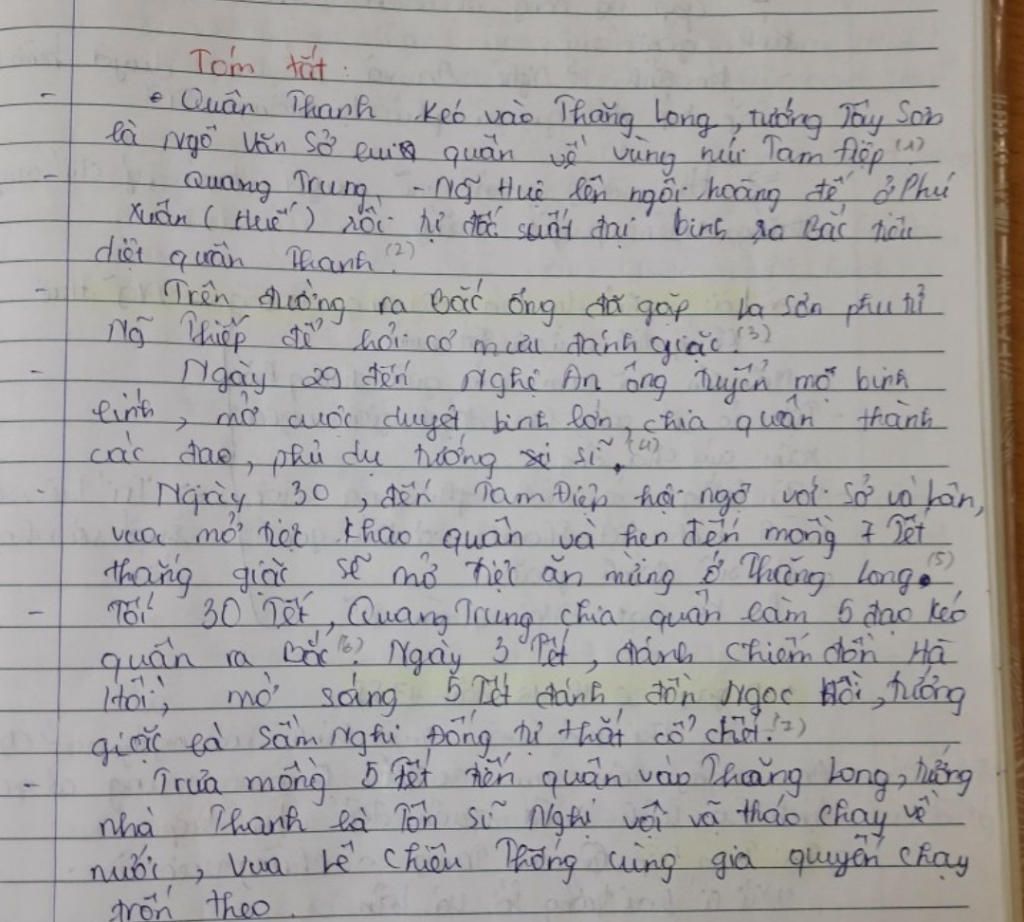 Tóm tắt:
- • Quân Thanh kéo vào Thăng Long, tướng Tây Sơn
là Ngô Văn Sở lui quân về vùng núi Tam Điệp.(1)
- Quang Trung - Ng~ Huệ lên ngôi hoàng đế, ở Phú
Xuân (Huế) rồi tự đốc suất đại binh ra Bắc tiêu
diệt quân Thanh.(2)
- Trên đường ra Bắc ông đã gặp La Sơn phu tử
Ng~ Thiếp để hỏi cơ mưu đánh giặc.(3)
- Ngày 29 đến Nghệ An ông tuyển mộ binh
lính, mở cuộc duyệt binh lớn, chia quân thành
các đạo, phủ dụ tướng sĩ.(4)
- Ngày 30, đến Tam Điệp hội ngộ với Sở và Lân,
vua mở tiệc khao quân và hẹn đến mồng 7 Tết
thắng giặc sẽ mở tiệc ăn mừng ở Thăng Long.(5)
- Tối 30 Tết, Quang Trung chia quân làm 5 đạo kéo
quân ra Bắc(6). Ngày 3 Tết, đánh chiếm đồn Hà
Hồi, mờ sáng 5 Tết đánh đồn Ngọc Hồi, tướng
giặc là Sầm Nghi Đống tự thắt cổ chết.(7)
- Trưa mồng 5 Tết tiến quân vào Thăng Long, tướng
nhà Thanh là Tôn Sĩ Nghị vội vã tháo chạy về
nước, vua Lê Chiêu Thống cùng gia quyến chạy
trốn theo.